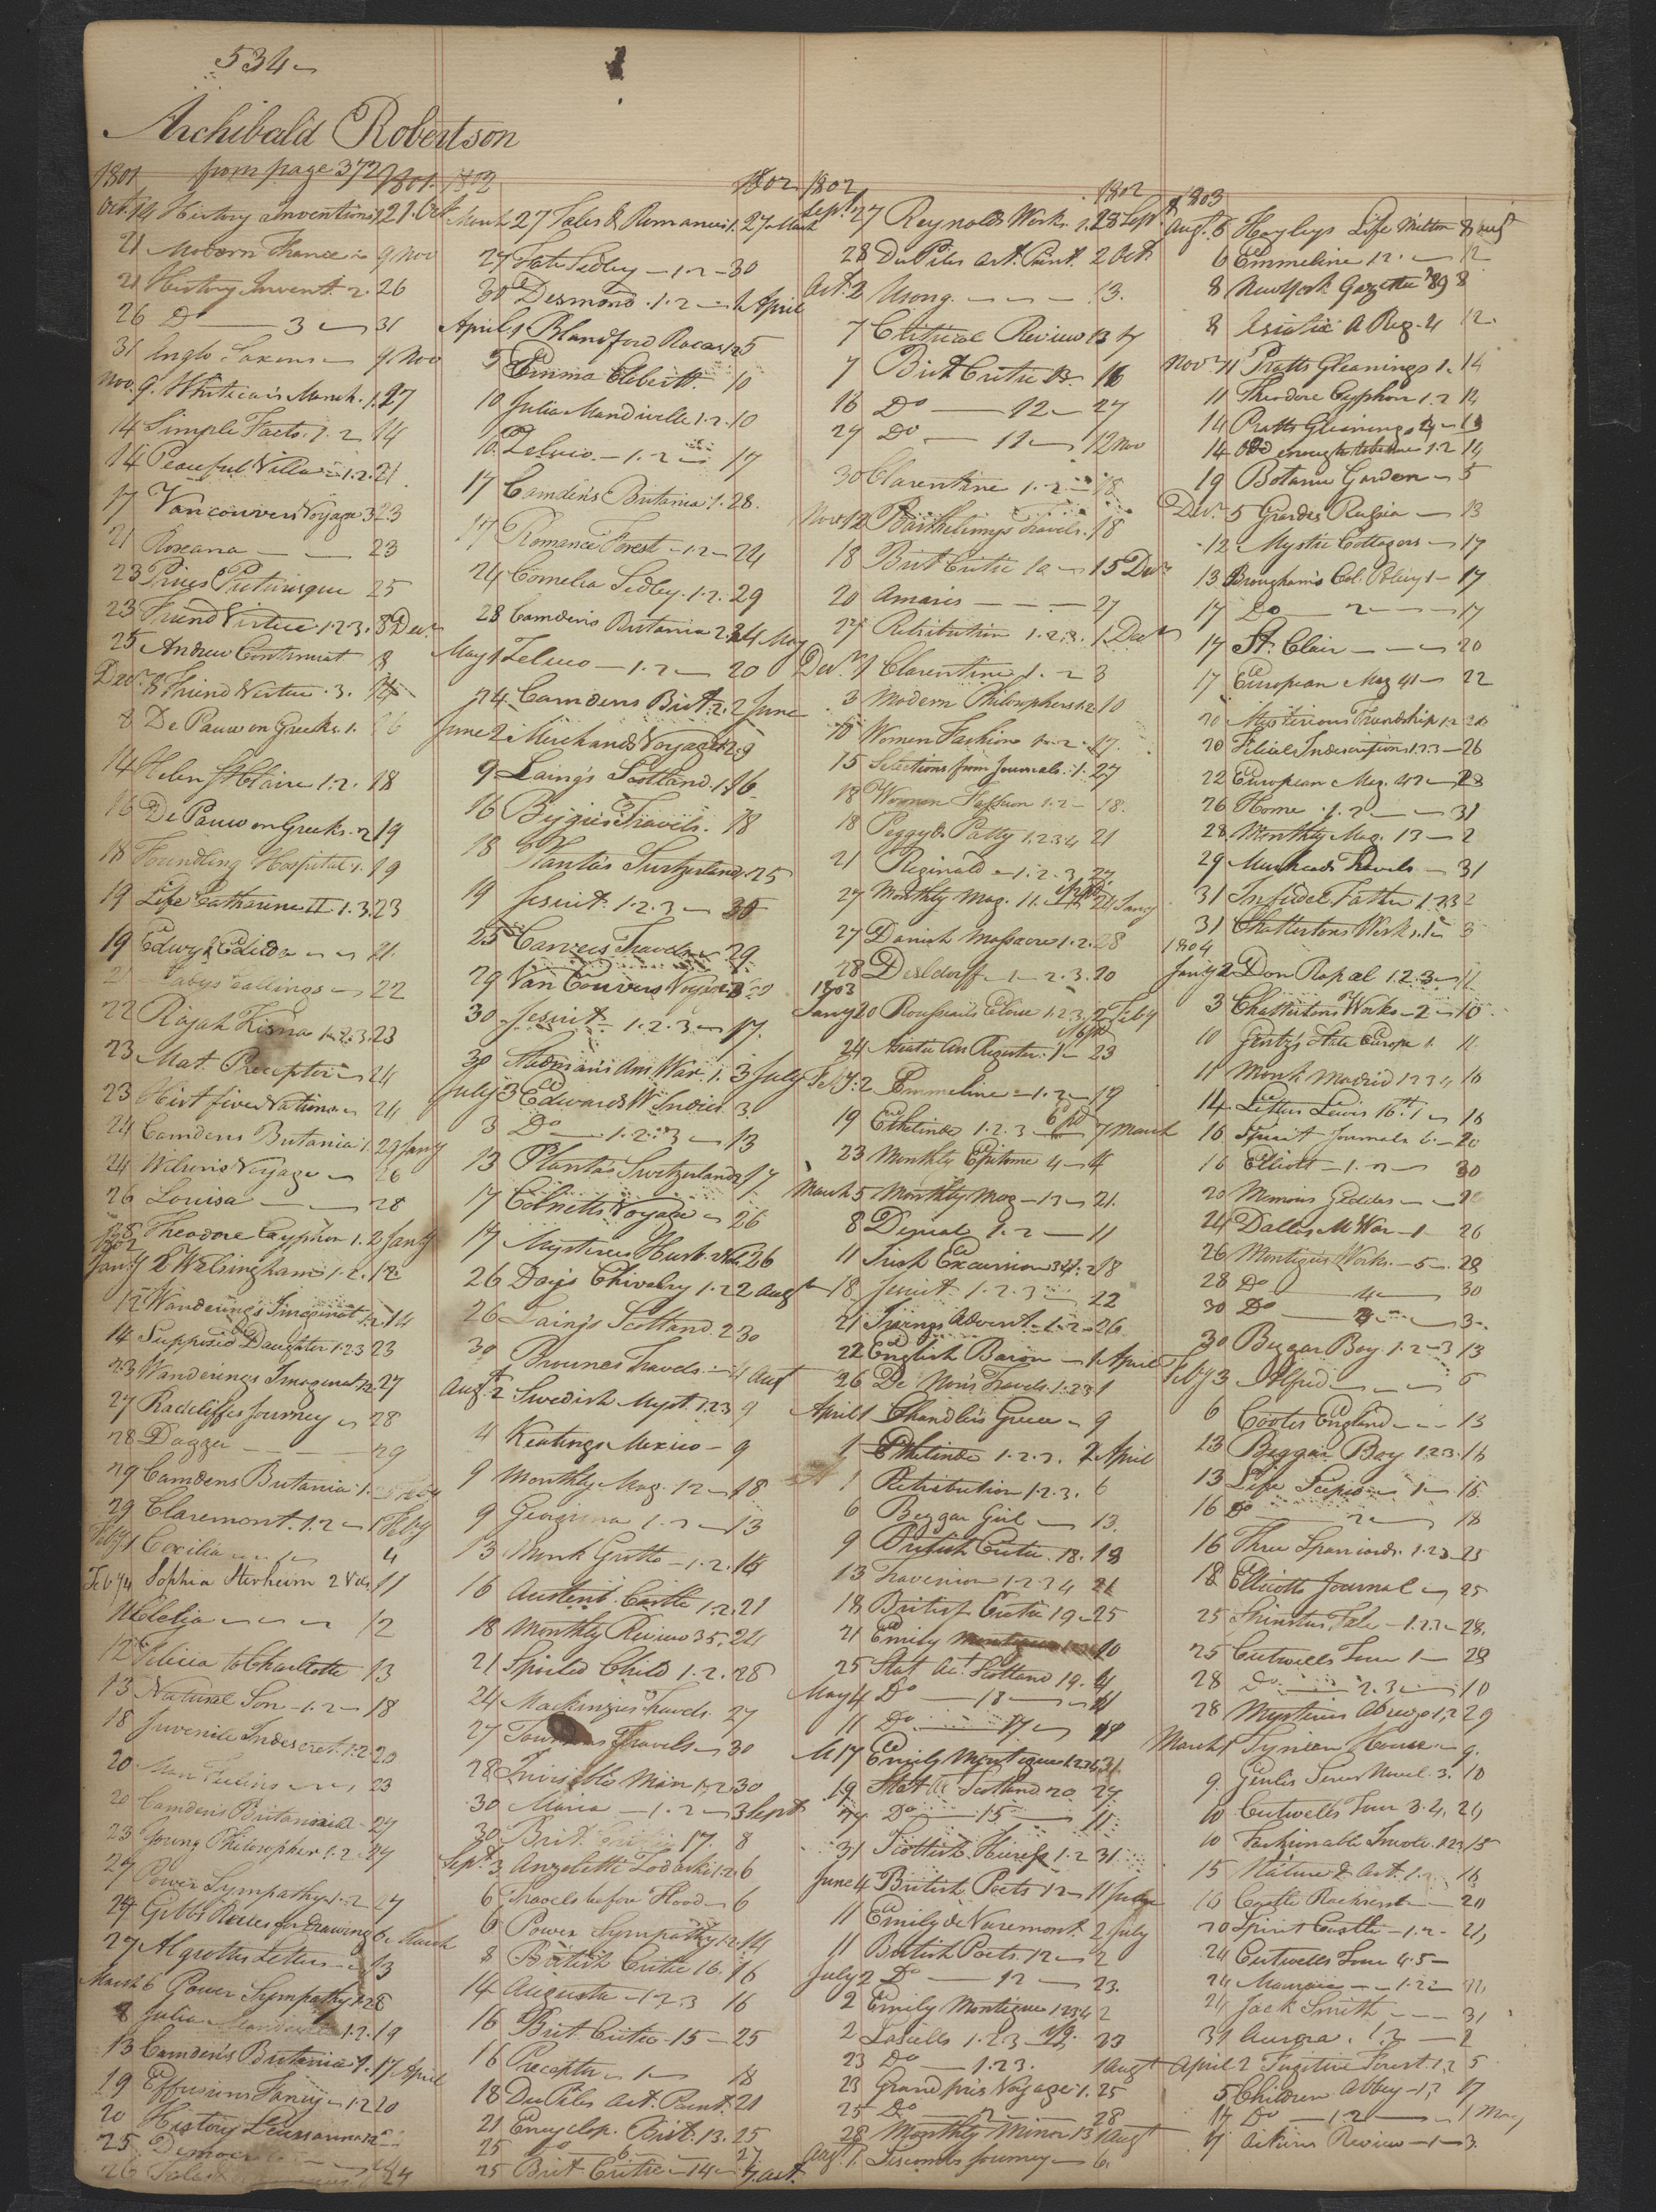 534
Archibald Robertson
from page 372
1801 1801
Octr 14 History Inventions 1 21 Oct
21 Modern France 9 Nov
21 History Invent. 2. 26
26 Do 3 31
31 Anglo Saxons 9 Nov
Nov. 9. Whitiears March. 1. 27
14 Simple Facts. 1. 2 14
14 Peaceful Villa 1. 2. 21
17 Vancouvers Voyage 3 23
21 Roxana 23
23 Prices Picturisque 25
23 Friend Virtue 1 2 3. 8 Decr
25 Andrew Continuat 8
Decr 8 Friend Virtue. 3. 14
8 De Pauw on Greeks 1. 16
14 Helen St Claire 1. 2. 18
16 De Pauw on Greeks. 2 19
18 Foundling Hospital 1. 19
19 Life Catharine II 1. 3. 23
19 Edwy & Edilda 21.
21 Ladys 22
22 Rajah Kisna 1. 2. 3. 23
23 Mat. Preceptor 24
23 Hist five Nations 24
24 Camdens Britania 1. 29 Jany
24 Wilsons Voyage 26
26 Louisa 28
28 Theodore Cyphon 1. 2 Jany
1802
Jany 2 Walsingham 1. 2. 12
12 Wanderings Imaginat. 1. 2. 14
14 Supposed Daughter 1 2 3 23
23 Wanderings Imaginat 1 2. 27
27 Radcliffes Journey 28
28 Dagger 29
29 Camdens Britania 1. Feby
29 Claremont. 1. 2 1 Feby
Feby 1 Cecilia 4
Feby 4 Sophia Sternheim 2 Vols 11
11 Clelia 12
12 Felicia to Charlotte 13
13 Natural Son 1. 2 18
18 Juvenile Indescret. 1. 2 20
20 Man Feeling 23
20 Camdens Britania 2 27
23 Young Philosopher 1. 2 27
27 Power Sympathy 1. 2 27
27 Gibbs Rules for Drawing 6 March
27 Algrottis Letters 13
March 6 Power Sympathy 1. 2 8
8 Julia 1. 2. 19
13 Camden's Britania 1. 17 April
19 Effusions Fancy 1. 2 20
20 History
25
26 Tales 27
1802 1802
March 27 Tales & Romances 1. 27 March
27 Fate Sedley 1. 2 30
30 Desmond. 1. 2 1 April
April 1 Blandford Races 1 2 5
5 Emma Corbett. 10
10 Julia Mandiville 1. 2. 10
10. Zeluco. 1. 2 17
17 Camden's Britania 1. 28.
17 Romance Forest 1. 2 24
24 Cornelia Sedley. 1. 2. 29
28 Camdens Britania 2 24 May
May 1 Zeluco 1. 2 20
24 Camdens Brit. 2. 2 June
June 2 Merchands Voyage 1 2. 9
9 Laing's Scotland. 1. 16
16 Bigges Travels. 18
18 Plantas Switzerland. 25
19 Jesuit. 1. 2. 3 30
25 Carvers Travels 29
29 Van Couvers Voyage
30 Jesuit 1. 2. 3 17.
30 Stedman's Am War 1. 3 July
July 3 Edwards W Indies. 3
3 Do 1. 2. 3 13
13 Plantas Switzerland 17
17 Colnetts Voyage 26
17 Mysterious Husb. 26
26 Day's Chivalry 1. 2 2 Augt
26 Laing's Scotland. 2 30
30 Brownes Travels 4 Augt
Augt 2 Swedish Myst. 1 2 3 9
4 Keatings Mexico 9
9 Monthly Mag. 12 18
9 Georgina 1. 2 13
13 Monk Grotto 1. 2. 16
16 Austenb. Castle 1. 2. 21
18 Monthly Review 35. 24
21 Spoiled Child 1. 2. 28
24 Mackinzies Travels. 27
27 Travels 30
28 Invisible Man 1. 2 30
30 Maria 1. 2 3 Sept
30 Brit. Critic 17. 8
Sept. 3 Anzoletta Zodaski 1. 2. 6
6 Travels before Flood 6
6 Power Sympathy 1. 2 14
8 British Critic 16. 16
14 Augusta 1 2 3 16
16 Brit. Critic. 15 25
16 Preceptor 1 18
18 Du Piles Art. Paint 21
21 Encyclop. Brit. 13. 25
25 Do 6 27
25 Brit Critic 14 7. Oct.
1802 1802
Sept. 27 Reynolds Works. 1. 28 Sept.
28 Du Piles Art. Paint. 2 Oct
Oct. 2 Usong. 13.
7 Critical Review 13 7
7 Brit Critic 13. 16
16 Do 12 27
27 Do 11 12 Nov
30 Clarentine 1. 2. 18
Novr 12 Barthelimys Travels. 18
18 Brit Critic 10 15 Decr
20 Amaris 27
27 Retribution 1. 2. 3. 1 Decr
Decr 1 Clarentine 1. 2 3
3 Modern Philosophers 1. 2 10
10 Women Fashion 1. 2. 17.
15 Selections from Journals. 1. 27
18 Women Fashion 1. 2 18.
18 Peggy & Patty 1. 2 3 4 21
21 Reginald 1. 2. 3 27.
27 Monthly Mag. 11. 24 Jany
27 Danish Massacre 1. 2. 28
28 Dusldorff 1 2. 3. 20
1803
Jany 20 Rousseaus Eloise 1. 2 3. 2 Feby
24 Asiatic An Register. 1 23
Feby. 2 Emmeline 1. 2 19
19 Ethelinde 1. 2. 3 7 March
23 Monthly Epitome 4 4
March 5 Monthly Mag 13 21.
8 Denial 1. 2 11
11 Irish Excursion 3 4. 18
18 Jesuit 1. 2. 3 22
21 Irvings Advent 1. 2 26
22 English Baron 1 April
26 De Non's Travels. 1. 2 3 1
April 1 Chandlers Greece 9
1 Ethelinde 1. 2. 3. 2 April
1 Retribution 1. 2. 3. 6
6 Beggar Girl 13.
9 British Critic. 18. 18
13 Travenion 1. 2 3 4 21
18 British Critic 19. 25
21 Emily Montigue 10
25 Stat Act. Scotland 19. 4
May 4 Do 18 11
11 Do 17. 19
17 Emily Montigue 1. 2 3 4 31
19 Stat Scotland 20. 27.
27 Do 15 11.
31 Scottish Heiress 1. 2 31
June 4 British Poets 12 11 July
11 Emily de Varemont. 2 July
11 British Poets. 12 2
July 2 Do 12 23.
2 Emily Montigue 1 2 3 4 2
2 Lascells 1. 2. 3 23
23 Do 1. 2 3. 1 Augt
23 Grandpres Voyage 1. 25
25 Do 2 28
28 Monthly Mirror 13 1 Augt
Augt. 1. Liscombs Journey 6.
1803
Augt. 6 Hayleys Life Milton 8 Augt
6 Emmeline 1 2. 12
8 New York Gazette '89 8
8 Asiatic A Reg. 4 12.
Novr 11 Pratts Gleanings 1. 14
11 Theodore Cyphon 1. 2 14
14 Pratts Gleanings 3 19
14 Old enough to be 1. 2 19
19 Botanic Garden 5
Decr 5 Grondes Russia 13
12 Mystic Cottagers 17
13 Brougham's Col. Policy 1 17.
17 Do 2 17
17 St. Clair 20
17 European Mag 41 22
20 Mysterious Friendship 1. 2 26
20 Filial Indiscretions 1 2 3 26
22 European Mag. 42 28
26 Home. 1. 2 31
28. Monthly Mag. 13 2
29 Muirheads Travels 31
31 Infidel Father 1. 2 3 2
31 Chattertons Works. 1 3
1804
Jany 2 Don Rapal 1. 2. 3 11
3 Chattertons Works 2 10
10 Gentz's State Europe 1. 11.
11 Monk Madrid 1 2 3 4 16
14 Letters Lewis 16th. 1 16
16 Spirit Journals 6 20
16 Elliott 1. 2 30
20 Memoirs Geddes 26
24 Dallas M War 1 26
26 Montigues Works. 5. 28
28 Do 4 30
30 Do 3 3.
30 Beggar Boy. 1. 2 3 13
Feby 3 Alfred 6
6 Cootes England 13
13 Beggar Boy 1 2 3. 16
13 Life Scipio 1 16
16 Do 2 18
16 Three Spaniards. 1. 2 3 25
18 Ellicotts Journal 25
25 Spinsters Tale 1. 2. 3 28.
25 Cutwells Tour 1 28
28 Do 2. 3 10
28 Mysterious Abruzo 1, 2 29
March 1 Synian House 9.
9. Genlis Novel. 3. 10
10 Cutwells Tour 3. 4, 24
10 Fashionable Involv. 1 2 3 15
15 Nature & Art. 1. 2. 16
16 Castle Rackrent 20
20 Spirit Castle 1. 2. 24
24 Cutwells Tour 4. 5
24 1. 2
24 Jack Smith 31
31 Aurora. 1. 2 2
April 2 Fugitive Forest. 1. 2 5
5 Children Abbey 1. 2 17
17 Do 1. 2 1 May
17 Aikins Review 1 3.